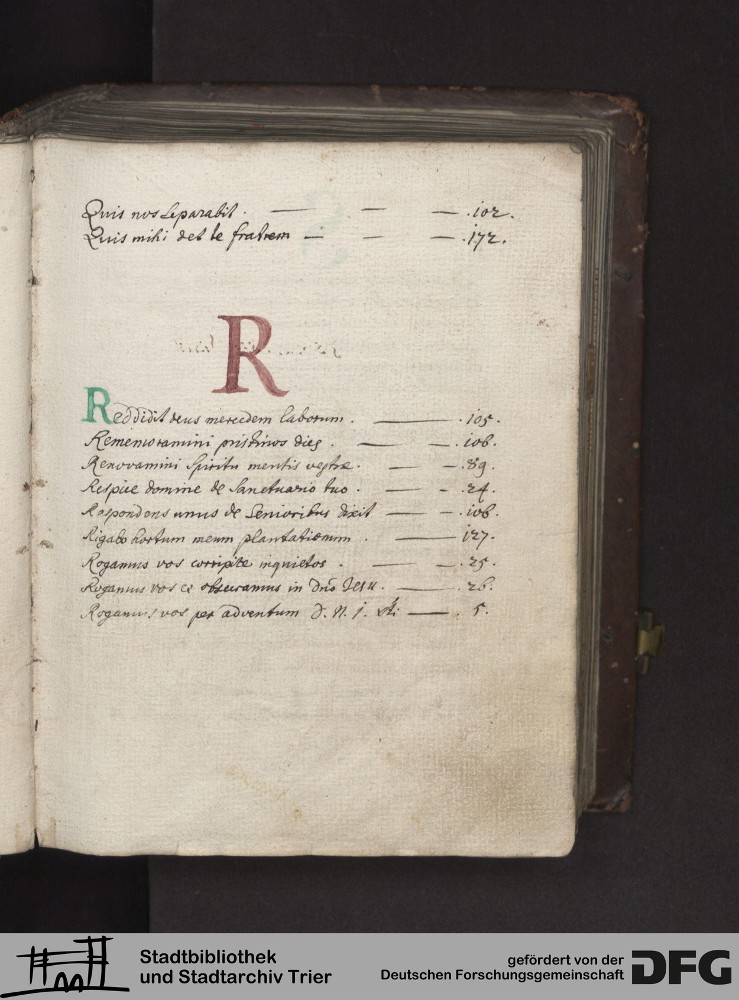 Quis nos separabit. — — — .102.
Quis mihi det te fratrem — — — .172.
R
Reddidit deus mercedem laborum. — .105.
Rememoramini pristinos dies. — — .106.
Renovamini spiritu mentis vestræ. — — .89.
Respice domine de Sanctuario tuo. — — .24.
Respondens unus de Senioribus dixit — — .106.
Rigabo hortum meum plantationum. — 127.
Rogamus vos corripite inquietos. — — .25.
Rogamus vos et obsecramus in dno Jesu. — .26.
Rogamus vos per adventum D. N. J. xti: — . 5.
Stadtbibliothek
und Stadtarchiv Trier
gefördert von der
Deutschen Forschungsgemeinschaft
DFG